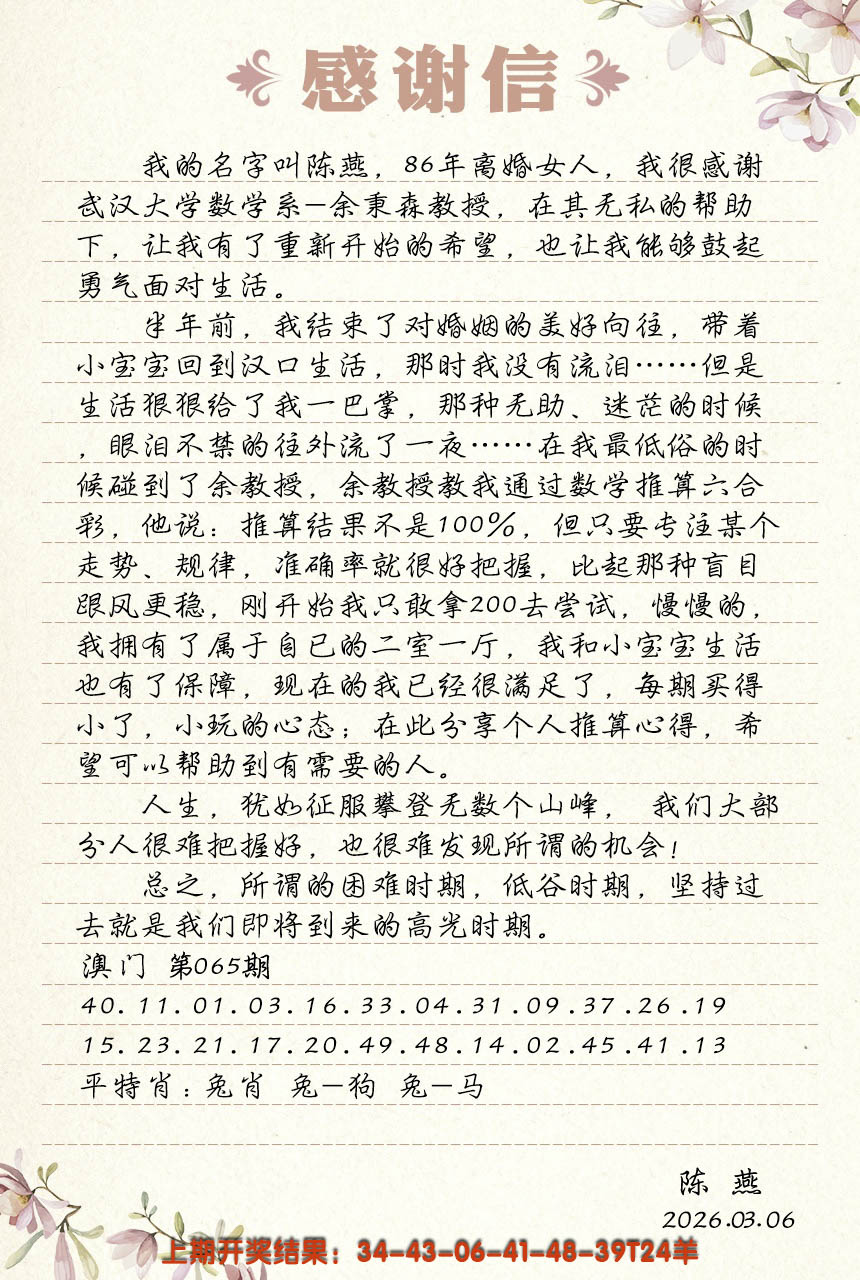 感谢信
我的名字叫陈燕，86年离婚女人，我很感谢
武汉大学数学系—余秉森教授，在其无私的帮助
下，让我有了重新开始的希望，也让我能够鼓起
勇气面对生活。
半年前，我结束了对婚姻的美好向往，带着
小宝宝回到汉口生活，那时我没有流泪……但是
生活狠狠给了我一巴掌，那种无助、迷茫的时候
，眼泪不禁的往外流了一夜……在我最低俗的时
候碰到了余教授，余教授教我通过数学推算六合
彩，他说：推算结果不是100%，但只要专注某个
走势、规律，准确率就很好把握，比起那种盲目
跟风更稳，刚开始我只敢拿200去尝试，慢慢的，
我拥有了属于自己的二室一厅，我和小宝宝生活
也有了保障，现在的我已经很满足了，每期买得
小了，小玩的心态；在此分享个人推算心得，希
望可以帮助到有需要的人。
人生，犹如征服攀登无数个山峰， 我们大部
分人很难把握好，也很难发现所谓的机会！
总之，所谓的困难时期，低谷时期，坚持过
去就是我们即将到来的高光时期。
澳门 第065期
40.11.01.03.16.33.04.31.09.37.26.19
15.23.21.17.20.49.48.14.02.45.41.13
平特肖：兔肖 兔—狗 兔—马
陈 燕
2026.03.06
上期开奖结果：34-43-06-41-48-39T24羊